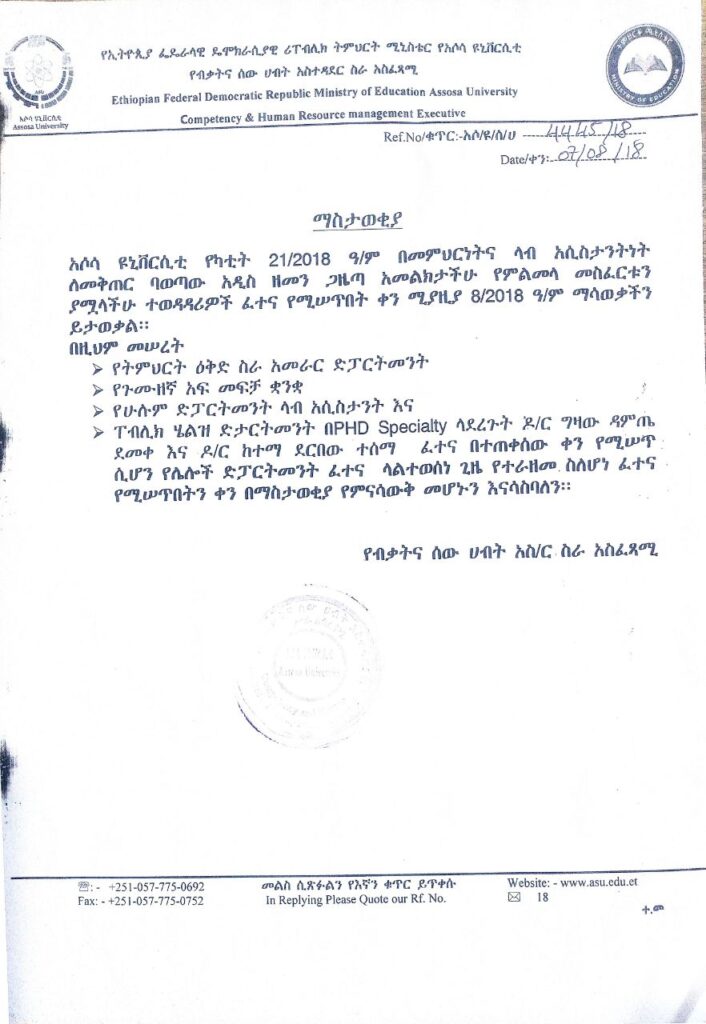 የኢትዮጲያ ፌዴራላዊ ዴሞክራሲያዊ ሪፐብሊክ ትምህርት ሚኒስቴር የአሶሳ ዩኒቨርሲቲ
የብቃትና ሰው ሀብት አስተዳደር ስራ አስፈጻሚ
Ethiopian Federal Democratic Republic Ministry of Education Assosa University
Competency & Human Resource management Executive
አሶሳ ዩኒቨርሲቲ
Assosa University
MINISTRY OF EDUCATION
Ref.No/ቁጥር:-አሶ/ዩ/ሰ/ሀ 4445/18
Date/ቀን:- 07/08/18
ማስታወቂያ
አሶሳ ዩኒቨርሲቲ የካቲት 21/2018 ዓ/ም በመምህርነትና ላብ አሲስታንትነት
ለመቅጠር ባወጣው አዲስ ዘመን ጋዜጣ አመልክታችሁ የምልመላ መስፈርቱን
ያሟላችሁ ተወዳዳሪዎች ፈተና የሚሠጥበት ቀን ሚያዚያ 8/2018 ዓ/ም ማሳወቃችን
ይታወቃል።
በዚህም መሠረት
➢ የትምህርት ዕቅድ ስራ አመራር ድፓርትመንት
➢ የጉሙዘኛ አፍ መፍቻ ቋንቋ
➢ የሁሉም ድፓርትመንት ላብ አሲስታንት እና
➢ ፐብሊክ ሄልዝ ድታርትመንት በPHD Specialty ላደረጉት ዶ/ር ግዛው ዳምጤ
ደመቀ እና ዶ/ር ከተማ ደርበው ተሰማ ፈተና በተጠቀሰው ቀን የሚሠጥ
ሲሆን የሌሎች ድፓርትመንት ፈተና ላልተወሰነ ጊዜ የተራዘመ ስለሆነ ፈተና
የሚሠጥበትን ቀን በማስታወቂያ የምናሳውቅ መሆኑን እናሳስባለን።
የብቃትና ሰው ሀብት አስ/ር ስራ አስፈጻሚ
Assosa University
☏: - +251-057-775-0692
Fax: - +251-057-775-0752
መልስ ሲጽፉልን የእኛን ቁጥር ይጥቀሱ
In Replying Please Quote our Rf. No.
Website: - www.asu.edu.et
✉ 18
ተ.መ